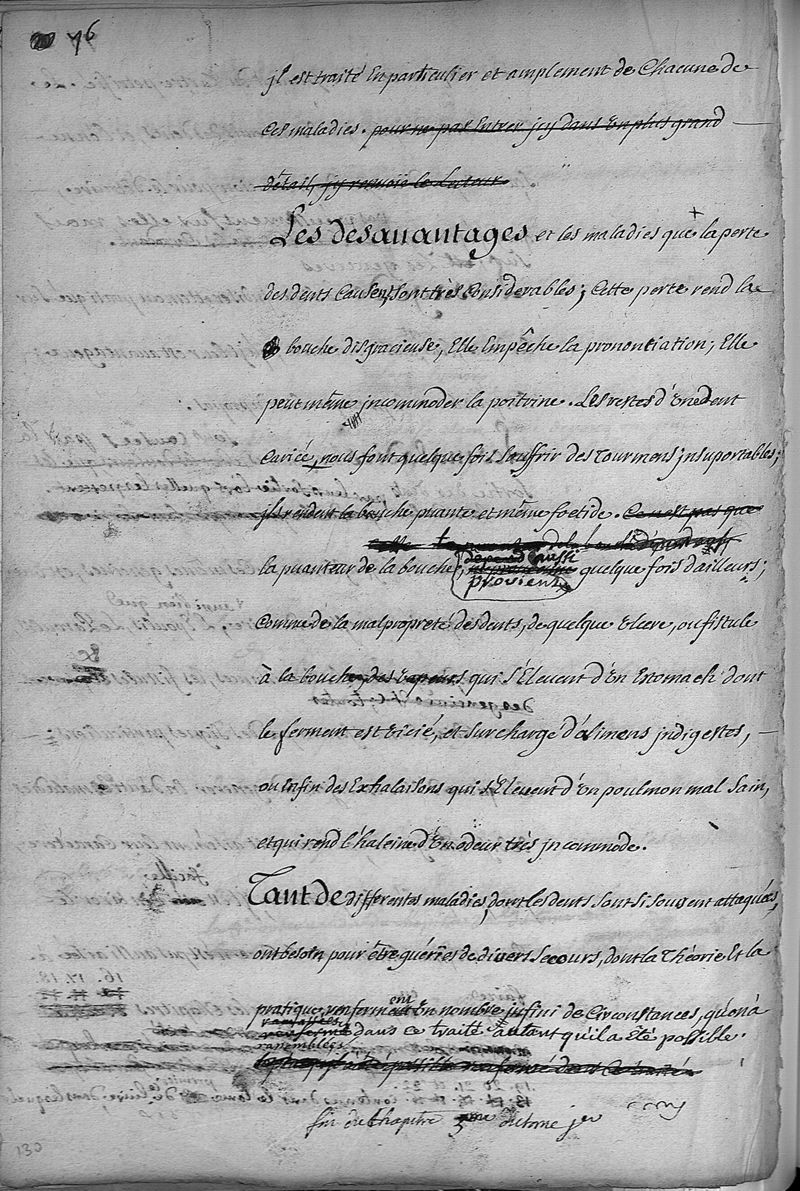 76
jl est traité En particulier et amplement de Chacune de
Ces maladies. pour ne pas Entrer jcy dans un plus grand
détail, j'y renvoie le Lecteur
Les desauantages et les maladies que la perte
des dents Causent, sont très Considerables; Cette perte rend la
bouche disgracieuse, Elle Empêche la pronontiation; Elle
peut même jncommoder la poitrine. Les restes d'Une dent
Cariée, nous font quelque fois souffrir des tourmens jnsuportables;
jls rendent la bouche puante et même foetide. Ce n'est pas que
la puanteur de la bouche, depend aussi
provient quelque fois d'ailleurs;
Comme de la malpropreté des dents, de quelque Ulcere, ou fistule
à la bouche, des vapeurs qui s'Eleuent d'Un Estomach dont
le ferment est vicié, et surchargé d'alimens jndigestes,
ou Enfin des Exhalaisons qui s'Eleuent d'Un poulmon mal sain,
et qui rend l'haleine d'Un odeur très jncommode.
Tant de differentes maladies, dont les dents sont si souvent attaquées,
ont besoin pour être guéries de divers secours, dont la Théorie Et la
pratique renferment Un nombre jnfini de Circonstances, qu'on a
ramassées
rassemblées dans ce traité autant qu'il a été possible.
fin du Chapitre 3me du tome jer
130